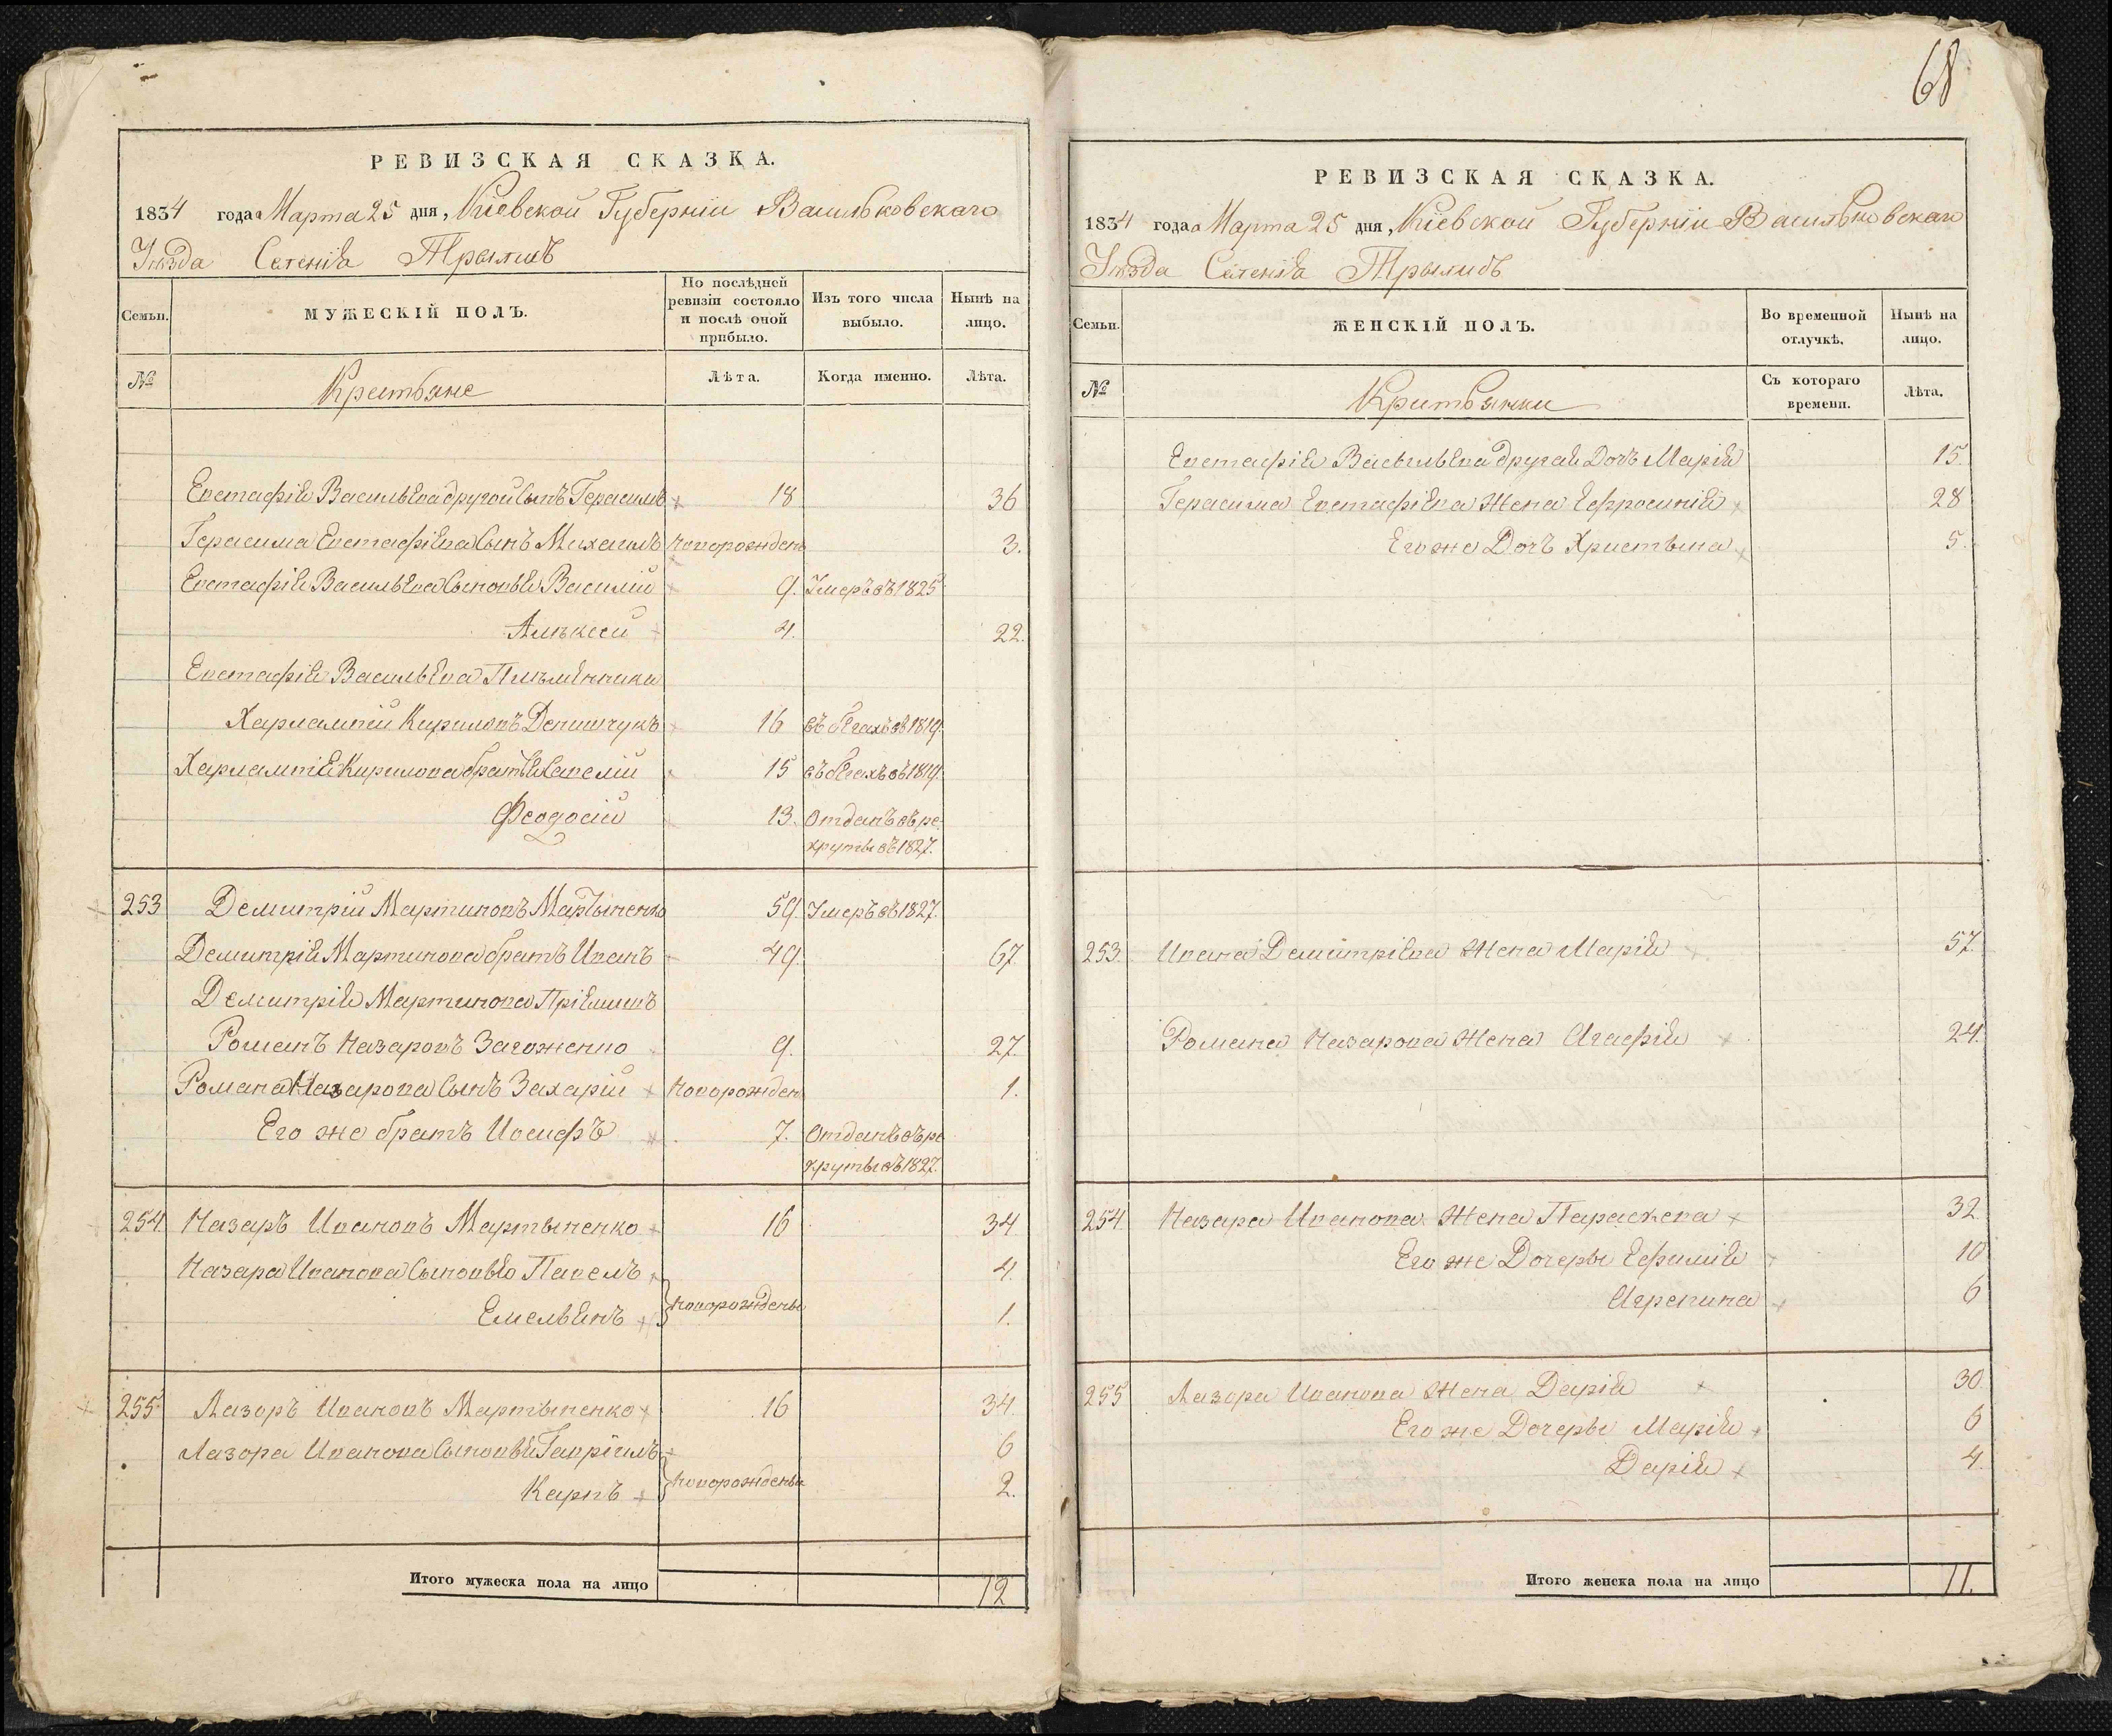 68
РЕВИЗСКАЯ СКАЗКА.
1834 года Марта 25 дня, Кіевской Губерніи Васильковскаго
Уѣзда Селенія Трылисъ
Семьи.
МУЖЕСКІЙ ПОЛЪ.
По послѣдней ревизіи состояло и послѣ оной прибыло.
Изъ того числа выбыло.
Нынѣ на лицо.
№
Крестьяне
Лѣта.
Когда именно.
Лѣта.
Евстафія Васильева другой Сынъ Герасимъ 18 36
Герасима Евстафіева Сынъ Михаилъ новорожденъ 3.
Евстафія Васильева Сыновья Василій 9. Умеръ въ 1825
Алѣксей 4. 22.
Евстафія Васильева Племѣнники
Харлампій Кириловъ Денищукъ 16 въ бѣгахъ съ 1819.
Харлампія Кирилова братья Савелій 15 въ бѣгахъ съ 1819.
Феодосій 13. Отданъ въ ре-
круты въ 1827.
253 Демитрій Мартиновъ Мартыненко 59. Умеръ въ 1827.
Демитрія Мартинова братъ Иванъ 49. 67.
Демитрія Мартинова Пріемышъ
Романъ Назаровъ 9. 27.
Романа Назарова Сынъ Захарій новорожден 1.
Его же братъ Иосифъ 7. Отданъ въ ре
круты въ 1827.
254. Назаръ Ивановъ Мартыненко 16 34.
Назара Иванова Сыновья Павелъ 4.
Емельянъ новорождены 1.
255. Лазоръ Ивановъ Мартыненко 16 34.
Лазора Иванова Сыновья Гавріилъ 6
Карпъ новорождены 2.
Итого мужеска пола на лицо 12
РЕВИЗСКАЯ СКАЗКА.
1834 года Марта 25 дня, Кіевской Губерніи Васильковскаго
Уѣзда Селенія Трылисъ
Семьи.
ЖЕНСКІЙ ПОЛЪ.
Во временной отлучкѣ.
Нынѣ на лицо.
№
Крестьянки
Съ котораго времени.
Лѣта.
Евстафія Васильева другая Дочь Марія 15.
Герасима Евстафіева Жена Ефросинія 28
Его же Дочь Христина 5.
253. Ивана Демитріева Жена Марія 57.
Романа Назарова Жена Агафія 24.
254. Назара Иванова Жена Параскева 32
Его же Дочеры Ефимія 10
Агрепина 6
255 Лазора Иванова Жена Дарія 30
Его же Дочеры Марія 6
Дарія 4.
Итого женска пола на лицо 11.